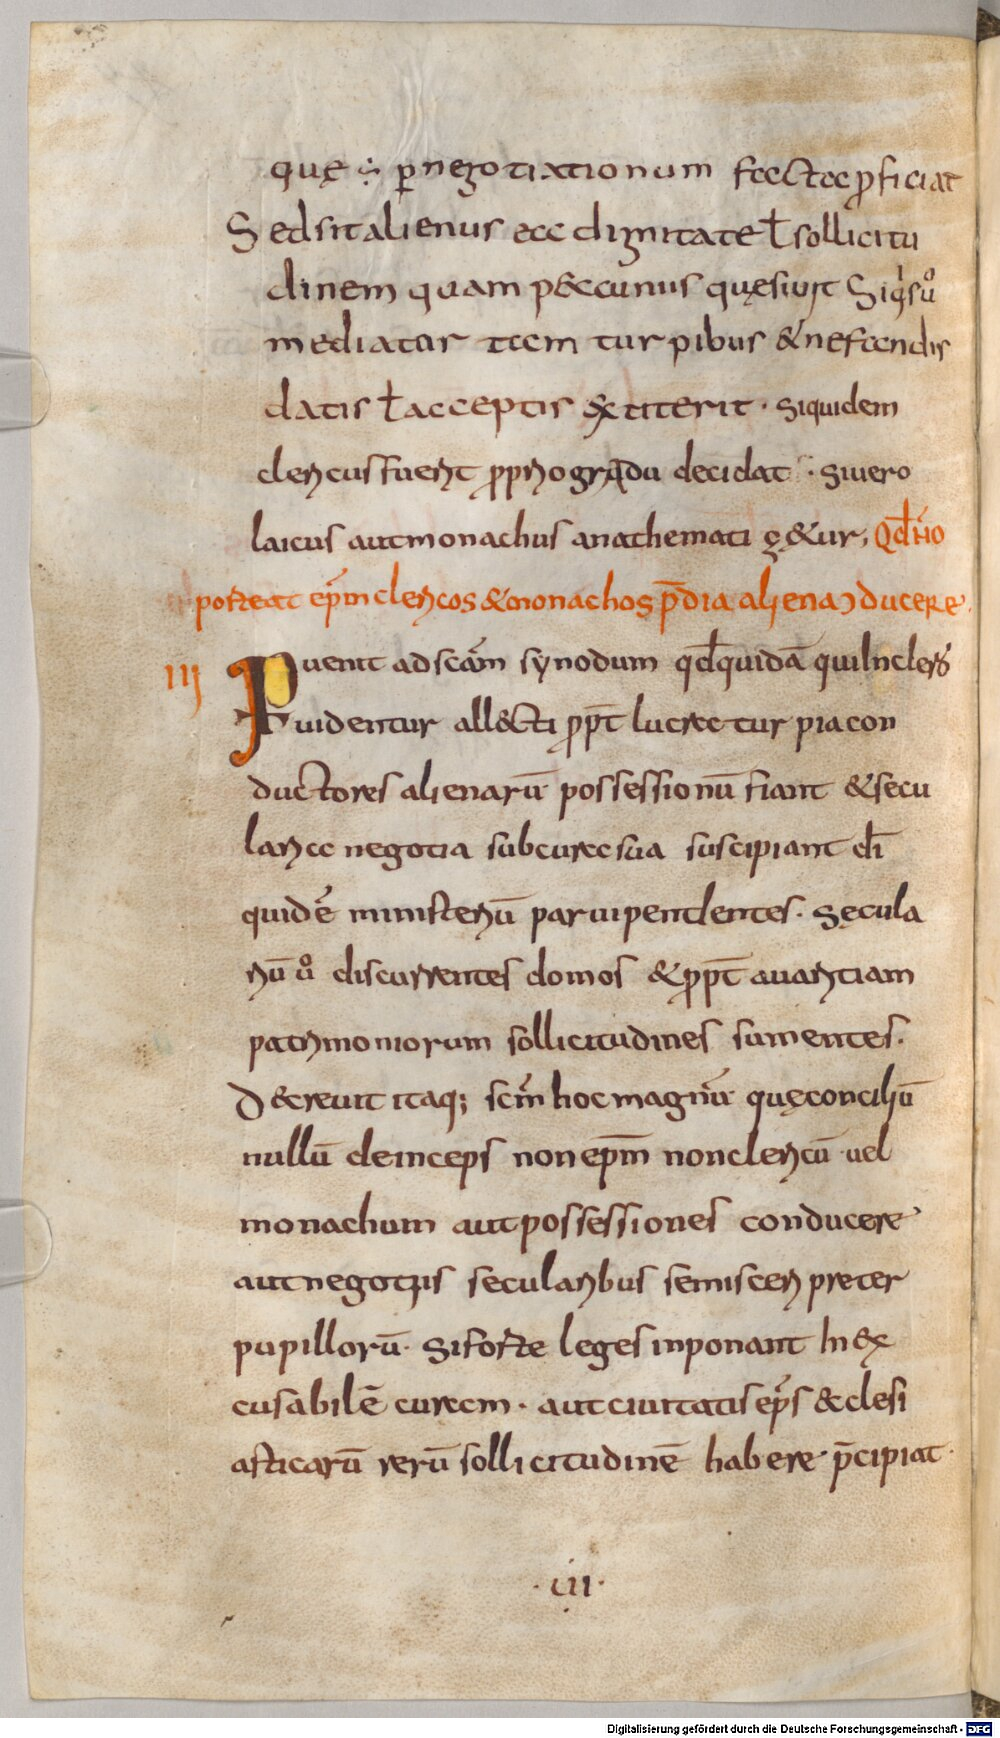 quę ṣ p̱ negotiationum facta p̱ficiat
Sed sit alienus ea dignitate ł sollicitu
dinem quam pecunus quęsiuit Siqͥs uͦ
mediatur tam turpibus & nefandis
datis ł acceptis extiterit · siquidem
clericus fuerit ꝓprio gradu decidat · si uero
laicus aut monachus anathematiz&ur; Qđ ñ o
porteat epm̄ clericos & monachos p̄dia aliena ɔducere.
III Puenit ad scām synodum qđ quidā qui In clero
uidentur all&cti ꝓpt̄ lucra turpia con
ductores alienarū possessionū fiant & secu
laria negotia sub cura sua suscipiant dī
quidē ministeriū paruipendentes. Secula
riū uͦ discurrentes domos & ꝓpt̄ auaritiam
patrimoniorum sollicitudines sumentes.
Decreuit itaq; scm̄ hoc magnū quę conciliū
nullū deinceps non epm̄ non clericū uel
monachum aut possessiones conducere
aut negotiis secularibus se misceri preter
pupillorū. Si forte leges inponant Inex
cusabilē curam · aut ciuitatis ep̄s & clesi
asticarū rerū sollicitudinē habere p̄cipiat ·
· iii ·
Digitalisierung gefördert durch die Deutsche Forschungsgemeinschaft - DFG